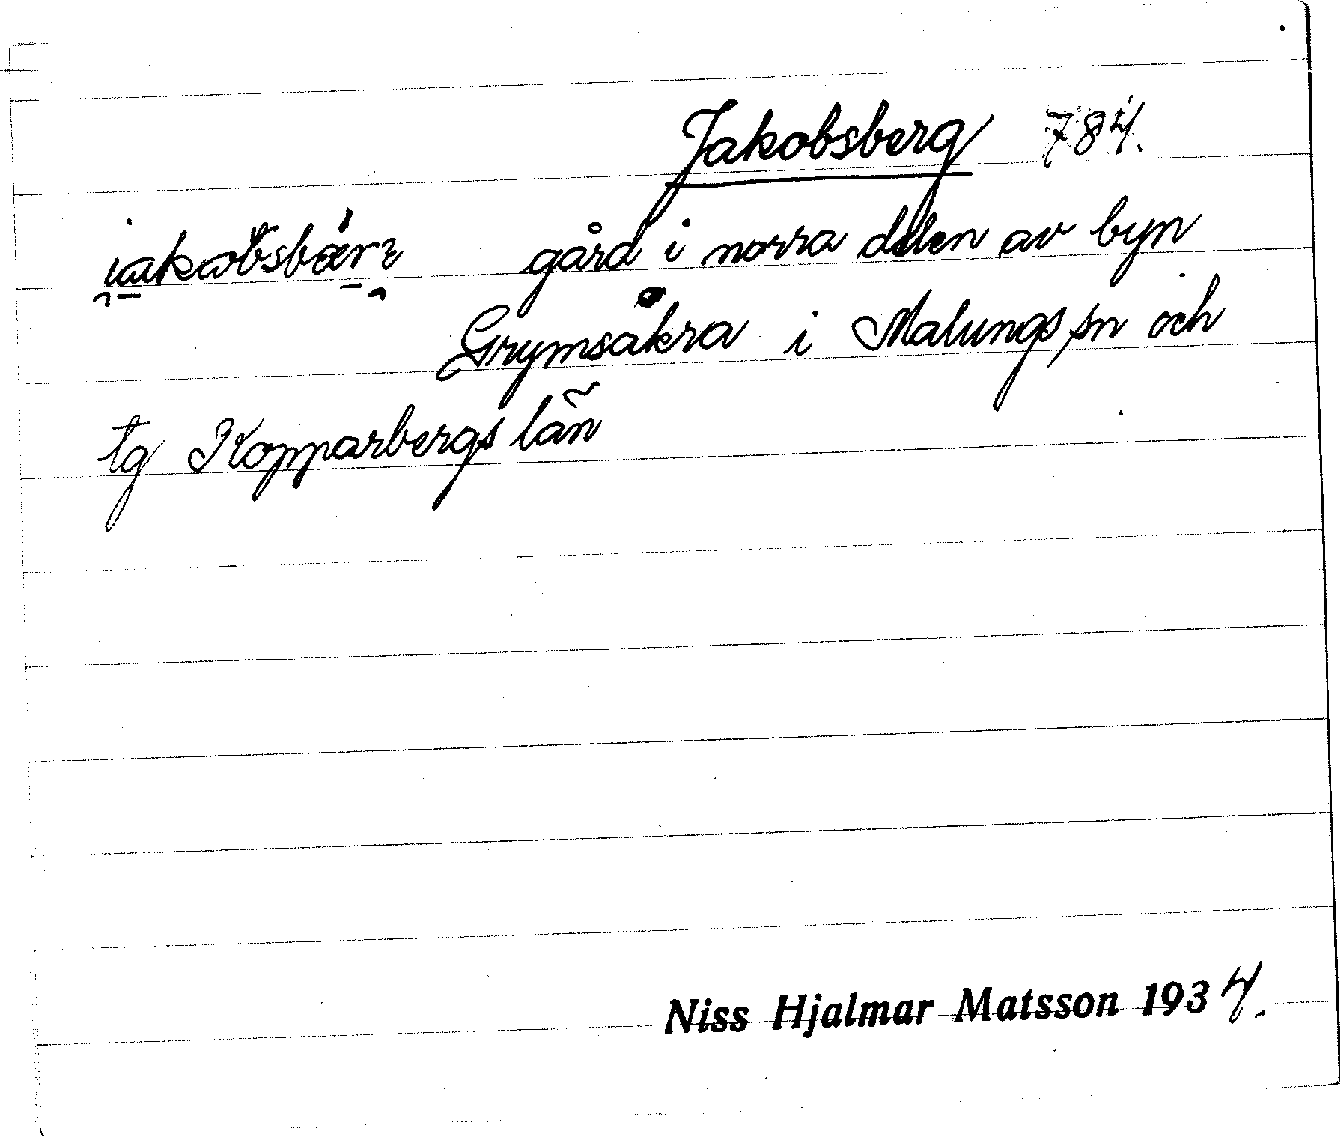 Jakobsberg 784.
i̯akobsbærɪ gård i norra delen av byn
Grymsåkra i Malungs sn och
tg Kopparbergs län
Niss Hjalmar Matsson 1934.